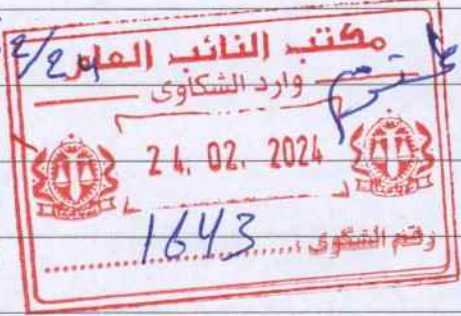 مكتب النائب العام
وارد الشكاوى
24. 02. 2024
رقم الشكوى : 1643